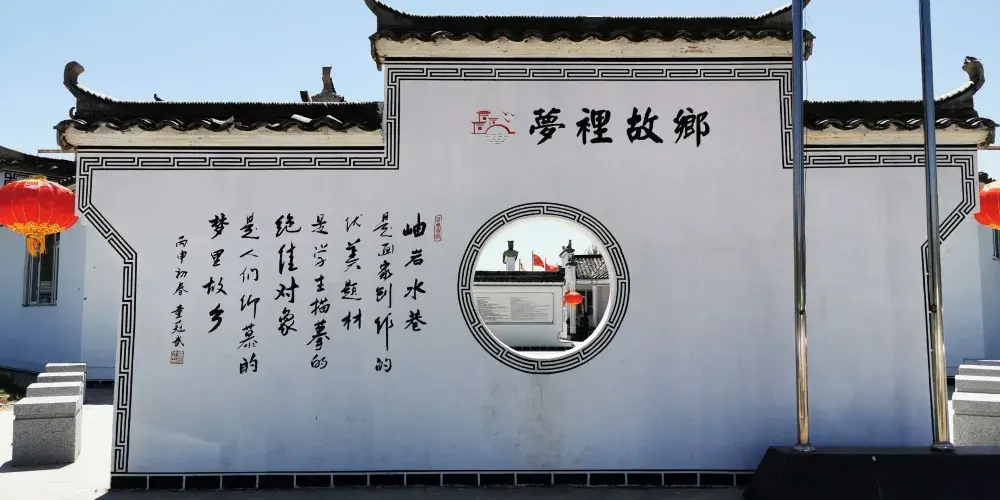 夢裡故鄉
岫岩水巷
是画家创作的
优美题材
是学生描摹的
绝佳对象
是人们仰慕的
梦里故乡
丙申初春 董冠武